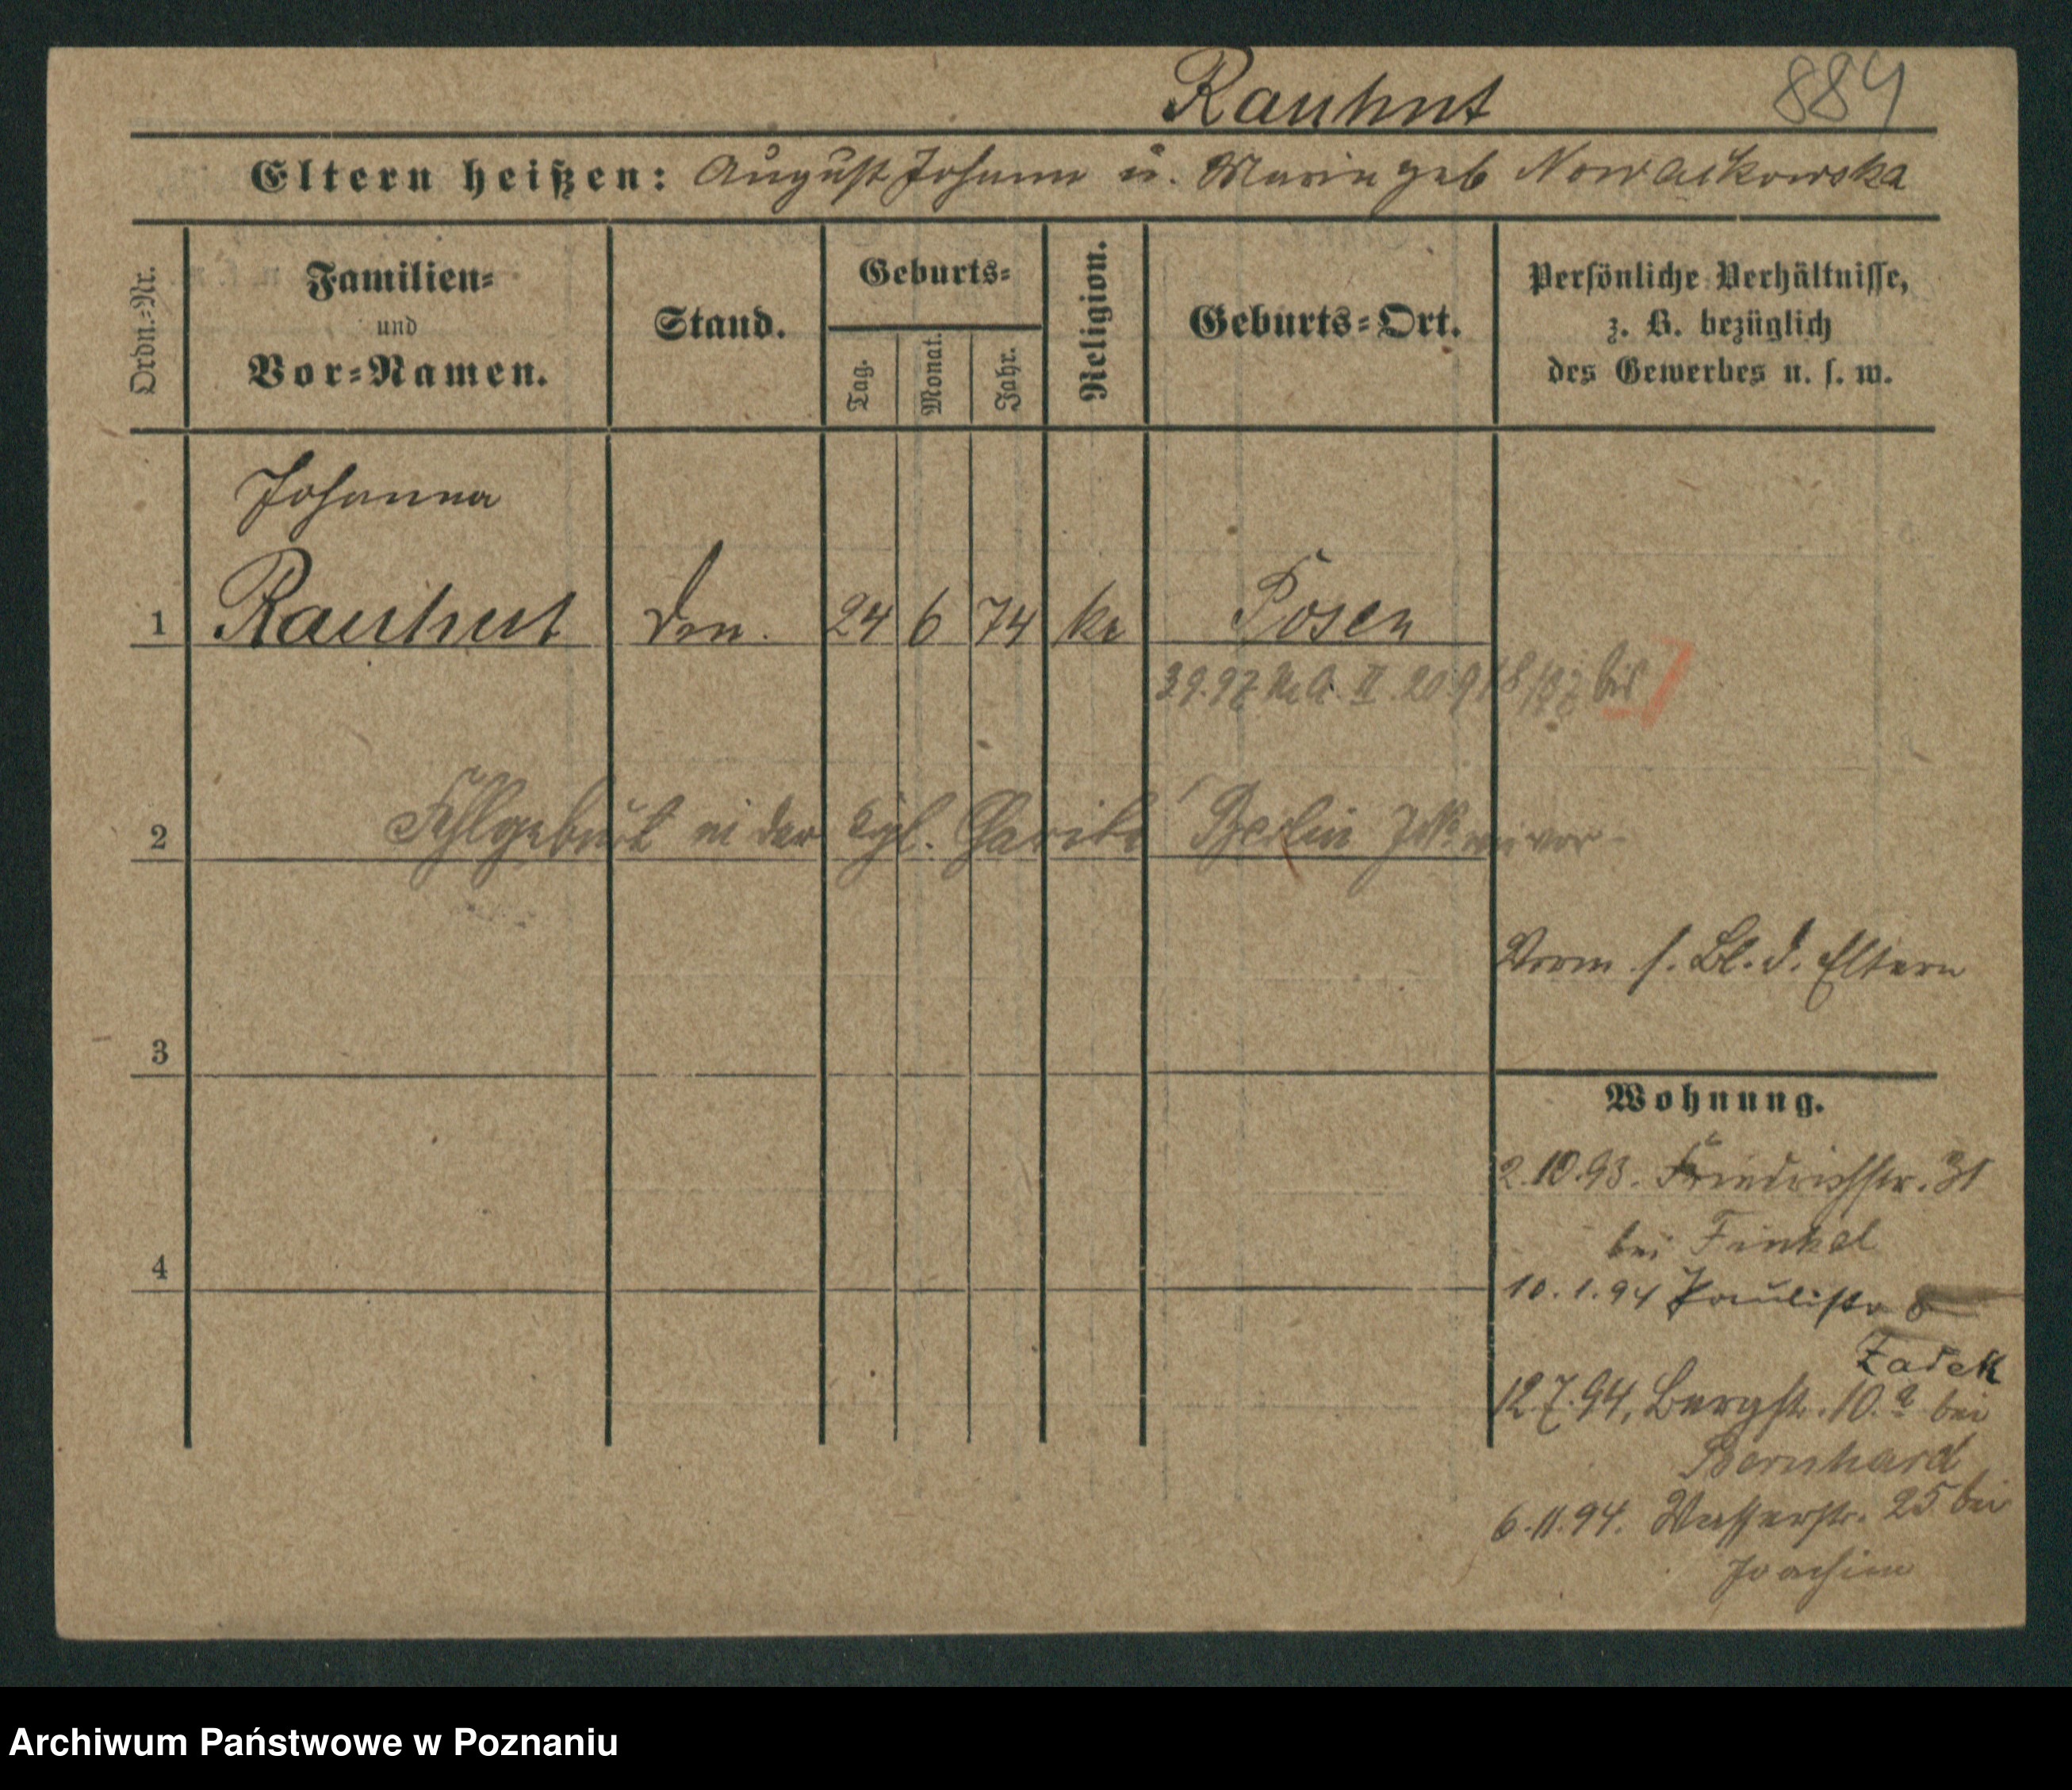 Rauhut 884
Eltern heißen: August Johann u. Marie geb Nowaskowska
Ordn.-Nr.
Familien-
und
Vor-Namen.
Stand.
Geburts-
Tag.
Monat.
Jahr.
Religion.
Geburts-Ort.
Persönliche Verhältnisse,
z. B. bezüglich
des Gewerbes u. s. w.
Johanna
1 Rauhut 24 6 74 Posen
II
2 Fehlgeburt in der Kgl. Charité Berlin
Vorm s. Bl. d. Eltern
3
Wohnung.
2.10.93. Friedrichstr. 31
bei Finkel
4
10.1.94 Paulistr 8
Zadek
12.7.94, Bergstr. 10.a bei
Bernhard
6.11.94. Wasserstr. 25 bei
Joachim
Archiwum Państwowe w Poznaniu